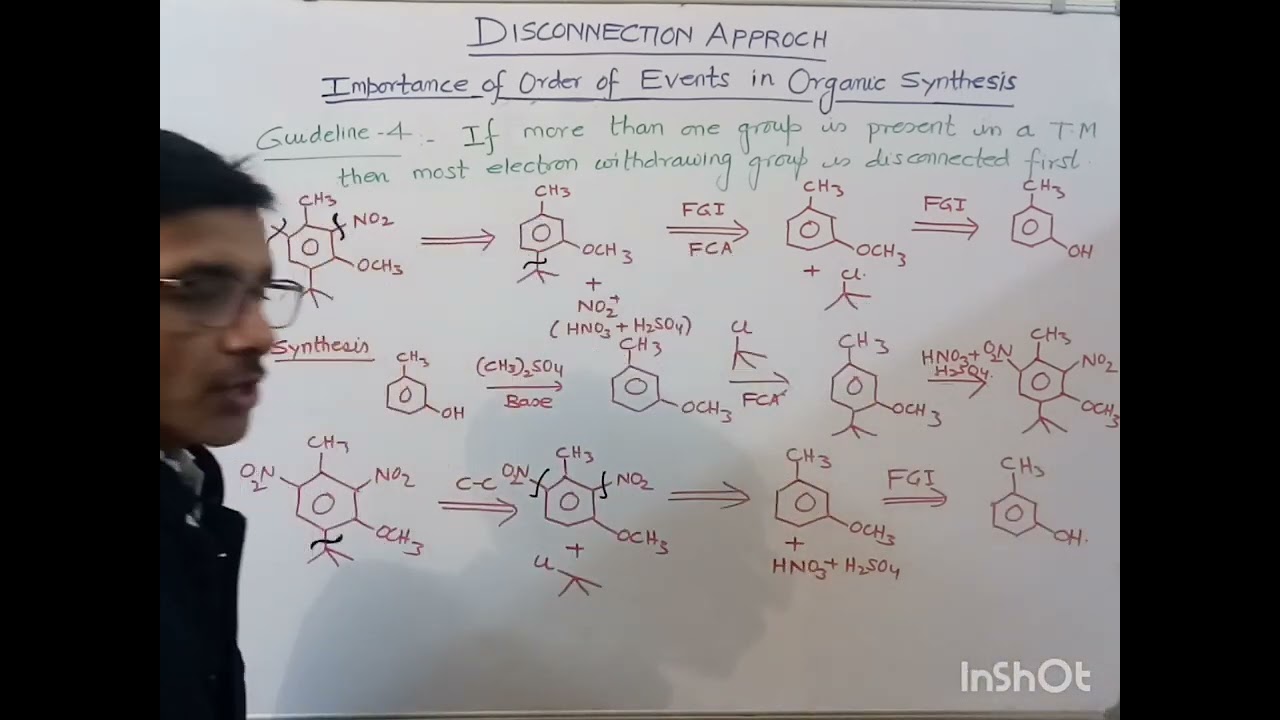 DISCONNECTION APPROCH
Importance of Order of Events in Organic Synthesis
Guideline-4:- If more than one group is present in a T.M
then most electron withdrawing group is disconnected first.
CH3 NO2 OCH3
CH3 OCH3
+
NO2+
(HNO3 + H2SO4)
FGI
FCA
CH3 OCH3
+ Cl
FGI
CH3 OH
Synthesis
CH3 OH
(CH3)2SO4
Base
CH3 OCH3
Cl
FCA
CH3 OCH3
HNO3+
H2SO4
CH3 O2N NO2 OCH3
CH3 O2N NO2 OCH3
C-C
CH3 O2N NO2 OCH3
+
Cl
CH3 OCH3
+
HNO3+H2SO4
FGI
CH3 OH.
InShOt